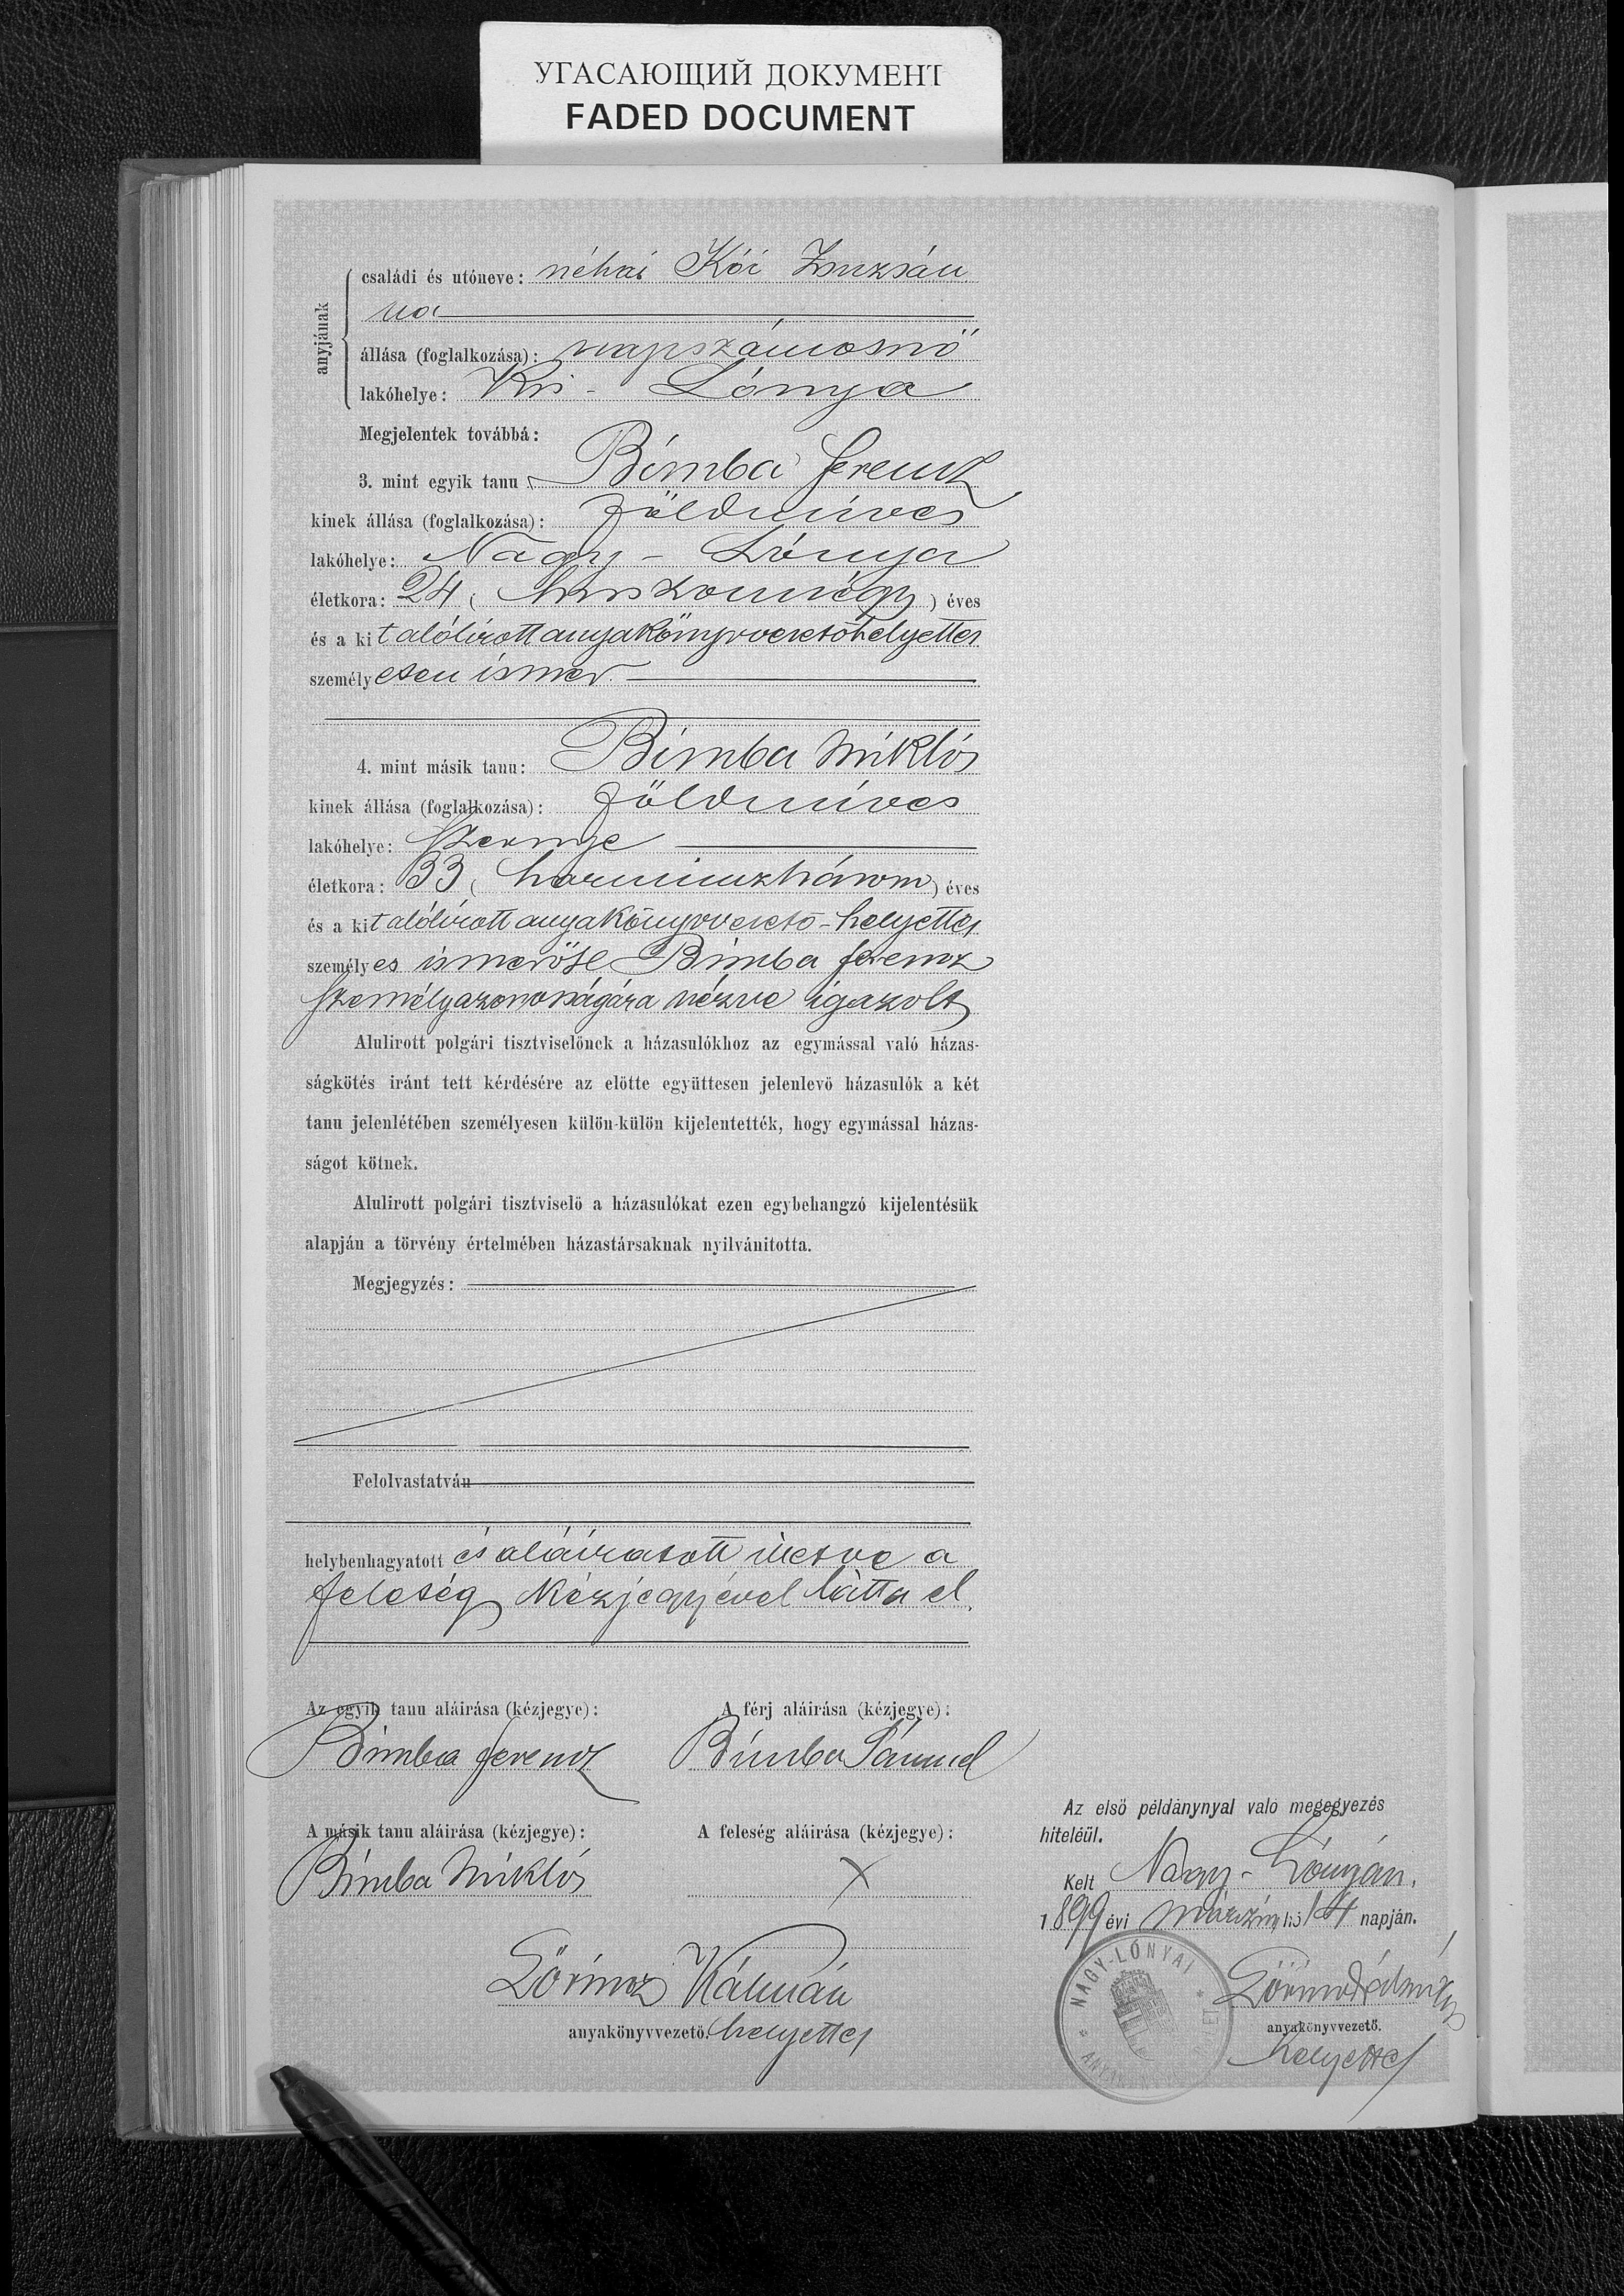 УГАСАЮЩИЙ ДОКУМЕНТ
FADED DOCUMENT
anyjának
családi és utóneve: néhai Kói Zsuzsán
na
állása (foglalkozása): napszámosnő
lakóhelye: Kis-Lónya
Megjelentek továbbá:
3. mint egyik tanu Bimba Ferencz
kinek állása (foglalkozása): földmíves
lakóhelye: Nagy-Lónya
életkora: 24 (huszonnégy) éves
és a kit alólírott anyakönyvvezetőhelyettes
személyesen ismer.
4. mint másik tanu: Bimba Miklós
kinek állása (foglalkozása): földmíves
lakóhelye: Szernye
életkora: 33 (harminczhárom) éves
és a kit alólírott anyakönyvvezető-helyettes
személyes ismerőse Bimba Ferencz
személyazonosságára nézve igazolt
Alulirott polgári tisztviselőnek a házasulókhoz az egymással való házas-
ságkötés iránt tett kérdésére az előtte együttesen jelenlevő házasulók a két
tanu jelenlétében személyesen külön-külön kijelentették, hogy egymással házas-
ságot kötnek.
Alulirott polgári tisztviselő a házasulókat ezen egybehangzó kijelentésük
alapján a törvény értelmében házastársaknak nyilvánitotta.
Megjegyzés:
Felolvastatván
helybenhagyatott és aláiratott illetve a
feleség kézjegyével látta el.
Az egyik tanu aláirása (kézjegye): A férj aláirása (kézjegye):
Bimba Ferencz Bimba Sámuel
A másik tanu aláirása (kézjegye): A feleség aláirása (kézjegye):
Bimba Miklós X
Kálmán
anyakönyvvezető. helyettes
Az első példánynyal való megegyezés
hiteléül.
Kelt Nagy-Lónyán,
1899 évi márczius hó 14 napján.
NAGY-LÓNYAI
anyakönyvvezető.
helyettes